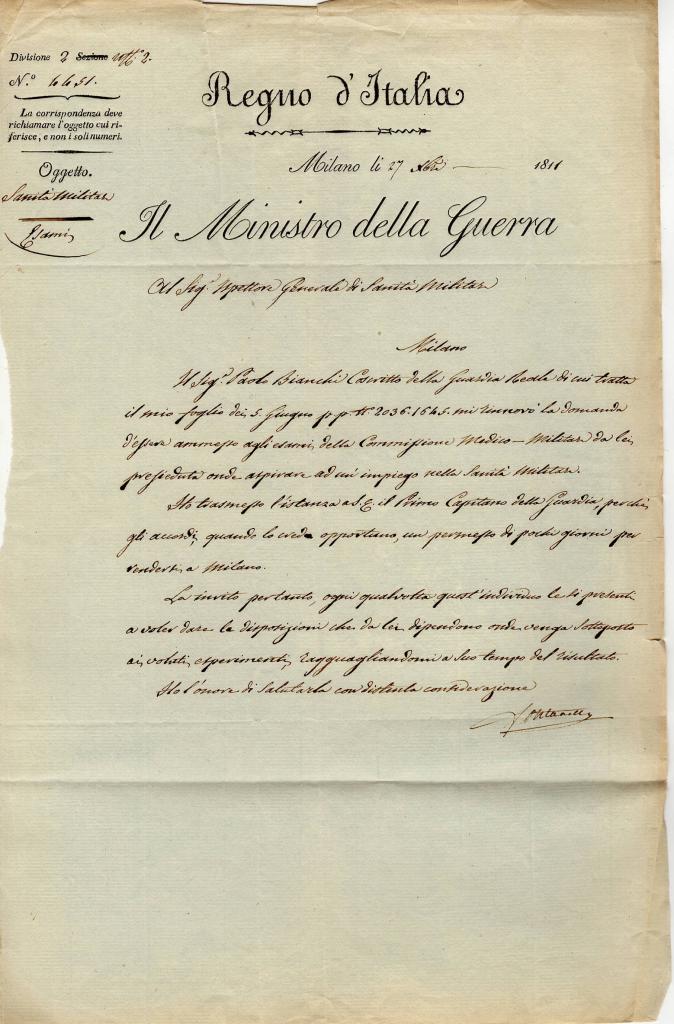 Divisione 2 Sezione Uff.o 2.
N.o 6651.
La corrispondenza deve
richiamare l'oggetto cui ri-
ferisce, e non i soli numeri.
Oggetto.
Sanità Militare
Esami
Regno d'Italia
Milano li 27 1811
Il Ministro della Guerra
Al Sig.r Ispettore Generale di Sanità Militare
Milano
Il Sig.r Paolo Bianchi Coscritto della Guardia Reale di cui tratta
il mio foglio dei 5. Giugno p.p. N. 2036.1645. mi rinnovò la domanda
d'essere ammesso agli esami della Commissione Medico-Militare da lei
presieduta onde aspirare ad un impiego nella Sanità Militare.
Ho trasmesso l'istanza a S.E. il Primo Capitano della Guardia, perchè
gli accordi, quando lo creda opportuno, un permesso di pochi giorni per
rendersi a Milano.
La invito pertanto, ogni qualvolta quest'individuo le si presenti
a voler dare le disposizioni che da lei dipendono onde venga sottoposto
ai voluti esperimenti, ragguagliandomi a suo tempo del risultato.
Ho l'onore di salutarla con distinta considerazione
Fontanelli